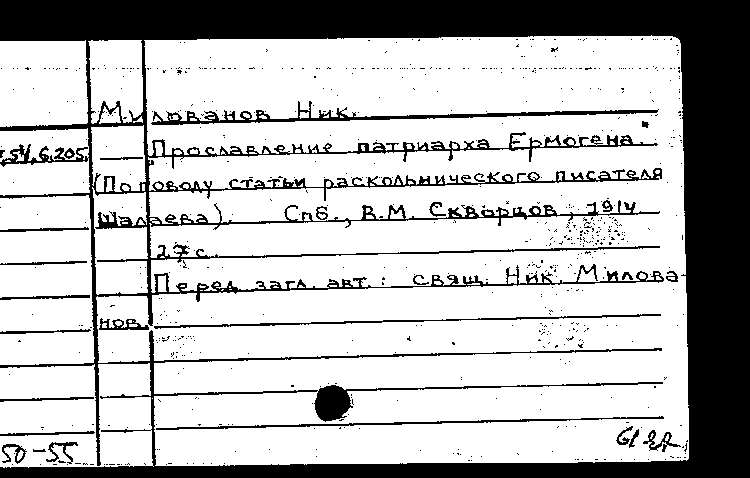 Милованов Ник.
54.6.205. "Прославление патриарха Ермогена."
(По поводу статьи раскольнического писателя
Шалаева). Спб., В.М. Скворцов, 1914
27 с.
Перед загл. авт.: свящ. Ник. Милова-
нов.
50-55